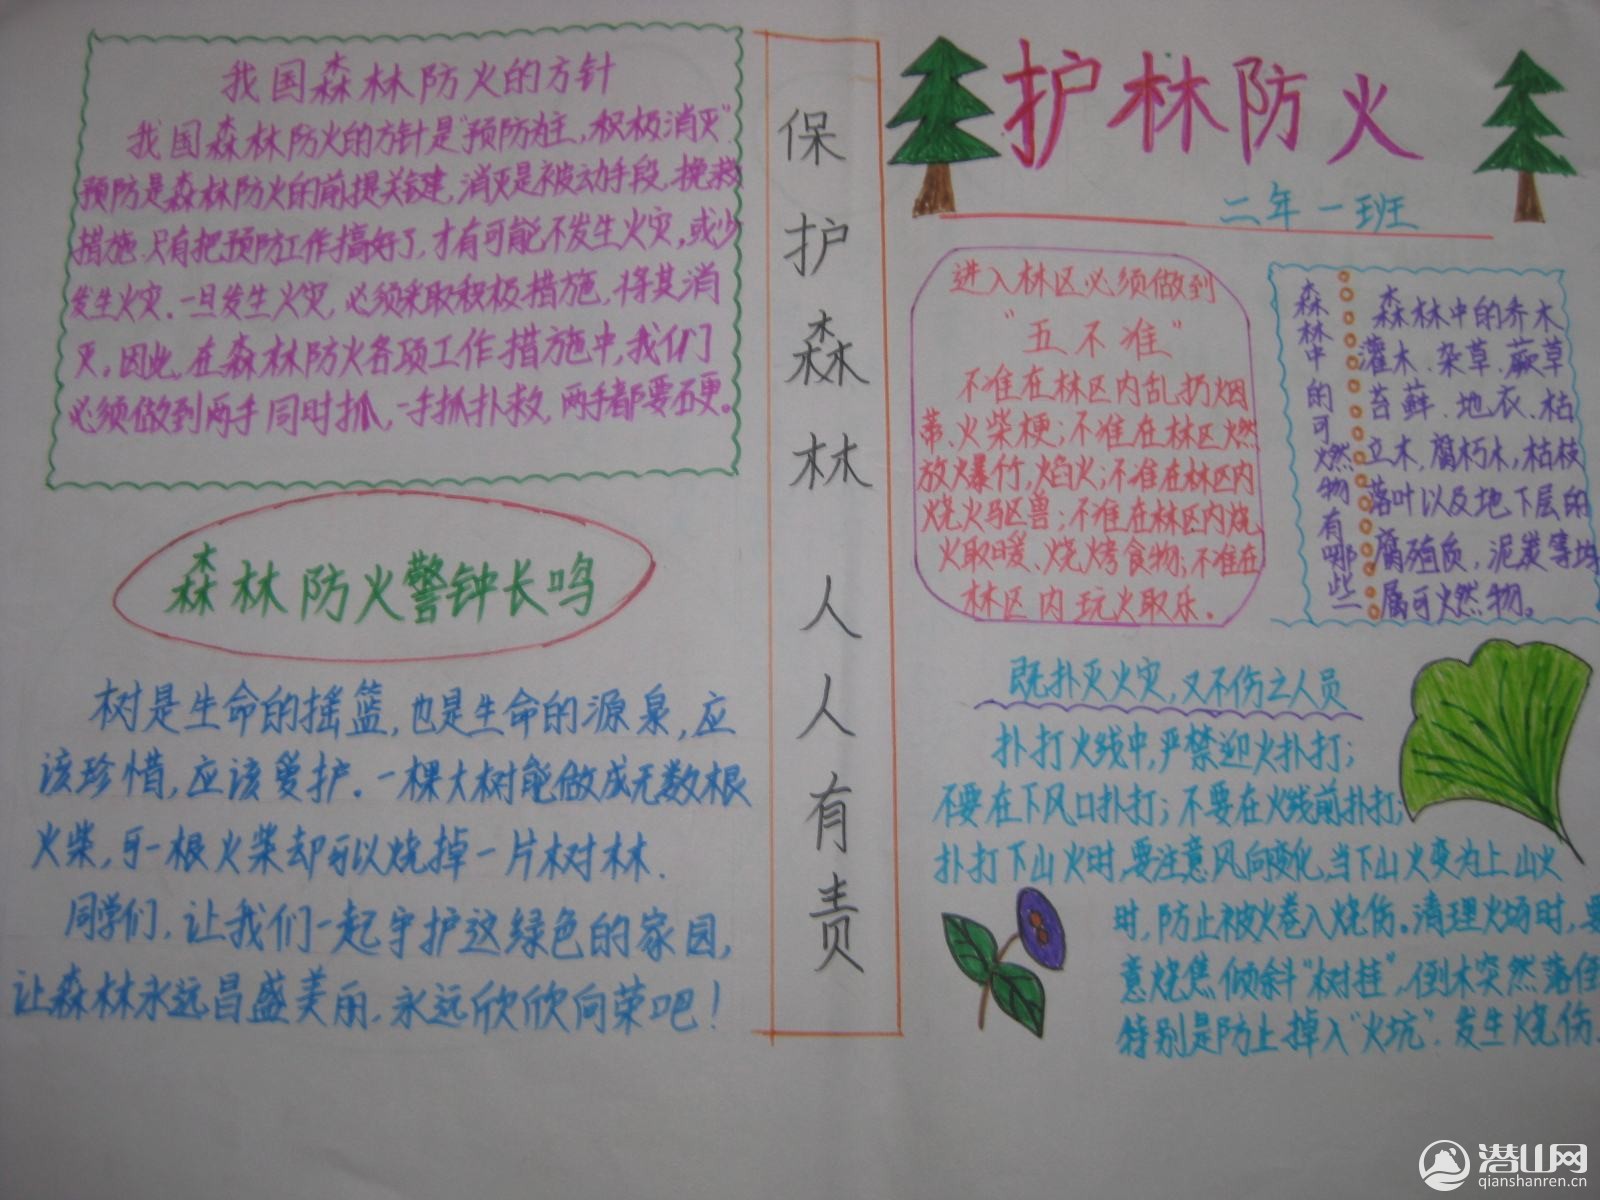 我国森林防火的方针
我国森林防火的方针是"预防为主,积极消灭"
预防是森林防火的前提关键,消灭是被动手段,挽救
措施.只有把预防工作搞好了,才有可能不发生火灾,或少
发生火灾.一旦发生火灾,必须采取积极措施,将其消
灭。因此,在森林防火各项工作措施中,我们
必须做到两手同时抓,一手抓扑救,两手都要硬。
森林防火警钟长鸣
树是生命的摇篮,也是生命的源泉,应
该珍惜,应该爱护.一棵大树能做成无数根
火柴,可一根火柴却可以烧掉一片树林.
同学们,让我们一起守护这绿色的家园,
让森林永远昌盛美丽.永远欣欣向荣吧!
保护森林人人有责
护林防火
二年一班
进入林区必须做到
"五不准"
不准在林区内乱扔烟
蒂、火柴梗;不准在林区燃
放火暴竹,焰火;不准在林区内
烧火驱兽;不准在林区内烧
火取暖、烧烤食物;不准在
林区内玩火取乐.
森林中的可燃物有哪些
森林中的乔木
灌木、杂草、蕨草
苔藓、地衣、枯
立木,腐朽木,枯枝
落叶以及地下层的
腐殖质,泥炭等均
属可火燃物。
既扑灭火灾,又不伤之人员
扑打火线中,严禁迎火扑打;
不要在下风口扑打;不要在火线前扑打;
扑打下山火时,要注意风向变化,当下山火变为上山火
时,防止被火卷入烧伤。清理火场时,要
意烧焦倾斜"树挂",倒木突然落倒
特别是防止掉入"火坑".发生烧伤.
潜山网
qianshanren.cn